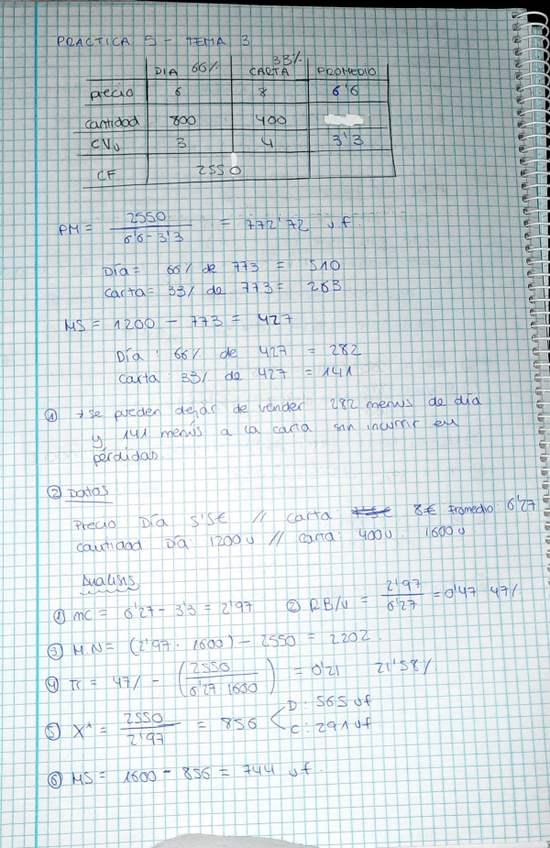 PRACTICA 5 - TEMA 3
DIA 66% CARTA 33% PROMEDIO
precio 6 8 6'6
cantidad 800 400
CVu 3 4 3'3
CF 2550
PM = 2550 / 6'6-3'3 = 772'72 uf
Día = 66% de 773 = 510
Carta = 33% de 773 = 263
MS = 1200 - 773 = 427
Día: 66% de 427 = 282
Carta 33% de 427 = 141
① → se pueden dejar de vender 282 menus de día
y 141 menús a la carta sin incurrir en
pérdidas.
② Datos
Precio Día 5'5€ // carta: 8€ Promedio: 6'27
cantidad Día 1200u // carta: 400u. 1600u
Analisis
① mc = 6'27 - 3'3 = 2'97 ② RB/v = 2'97 / 6'27 = 0'47 47%
③ M.N = (2'97 · 1600) - 2550 = 2202.
④ π = 47% - (2550 / 6'27·1600) = 0'21 21'58%
⑤ X* = 2550 / 2'97 = 856 < D: 565 uf
C: 291 uf
⑥ MS = 1600 - 856 = 744 uf.